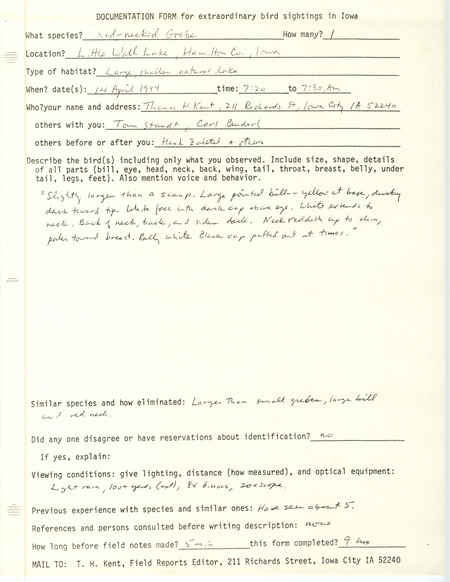 DOCUMENTATION FORM for extraordinary bird sightings in Iowa
What species? Red-necked Grebe How many? 1
Location? Little Wall Lake, Hamilton Co., Iowa
Type of habitat? Large, shallow natural lake
When? date(s): 14 April 1984 time: 7:20 to 7:30 AM
Who? your name and address: Thomas H. Kent, 211 Richards St, Iowa City IA 52240
others with you: Tom Staudt, Carl Bendorf
others before or after you: Hank Zaletel + others
Describe the bird(s) including only what you observed. Include size, shape, details
of all parts (bill, eye, head, neck, back, wing, tail, throat, breast, belly, under
tail, legs, feet). Also mention voice and behavior.
"Slightly larger than a scaup. Large pointed bill - yellow at base, dusky
dark toward tip. White face with dark cap above eye. White extends to
neck. Back of neck, back, and sides dark. Neck reddish up to chin,
paler toward breast. Belly white. Black cap puffed out at times."
Similar species and how eliminated: Larger than small grebes, large bill
and red neck.
Did any one disagree or have reservations about identification? no
If yes, explain:
Viewing conditions: give lighting, distance (how measured), and optical equipment:
Light rain, 100+ yards (est), 8x binocs, 20x scope.
Previous experience with species and similar ones: Have seen about 5.
References and persons consulted before writing description: none
How long before field notes made? 5 min this form completed? 9 hrs
MAIL TO: T. H. Kent, Field Reports Editor, 211 Richards Street, Iowa City IA 52240